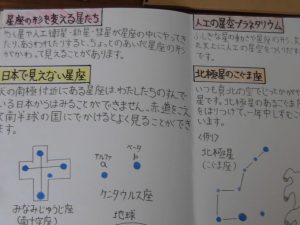 星座の形を変える星たち
わく星や人工衛星・新星・彗星が星座の中にやってき
たりあらわれたりすると、ちょっとのあいだ星座の形
がかわって見えることがあります。
日本で見えない星座
天の南極付近にある星座はわたしたちのすんで
いる日本からはみることができません。赤道をこえ
て南半球の国にでかけるとよく見ることができ
ます。
アルファ
α
ベータ
β
ケンタウルス座
みなみじゅうじ座
(南十字座)
地球
人工の星空プラネタリウム
北極星のこぐま座
いつも真北の空でじっとかがや
星です。北極星のあるこぐま
をはりつけて、一年中しずむこ
います。
〈例〉
北極星
(こぐま座)